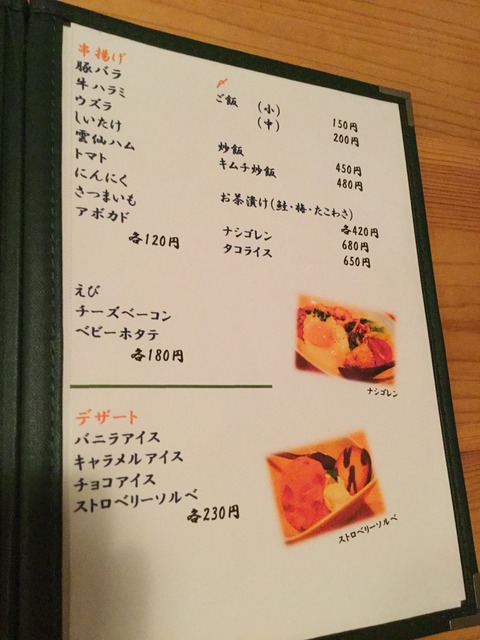 串揚げ
豚バラ
牛ハラミ
ウズラ
しいたけ
雲仙ハム
トマト
にんにく
さつまいも
アボカド
各120円
えび
チーズベーコン
ベビーホタテ
各180円
デザート
バニラアイス
キャラメルアイス
チョコアイス
ストロベリーソルベ
各230円
〆
ご飯 (小) 150円
(中) 200円
炒飯 450円
キムチ炒飯 480円
お茶漬け(鮭・梅・たこわさ)
各420円
ナシゴレン 680円
タコライス 650円
ナシゴレン
ストロベリーソルベ